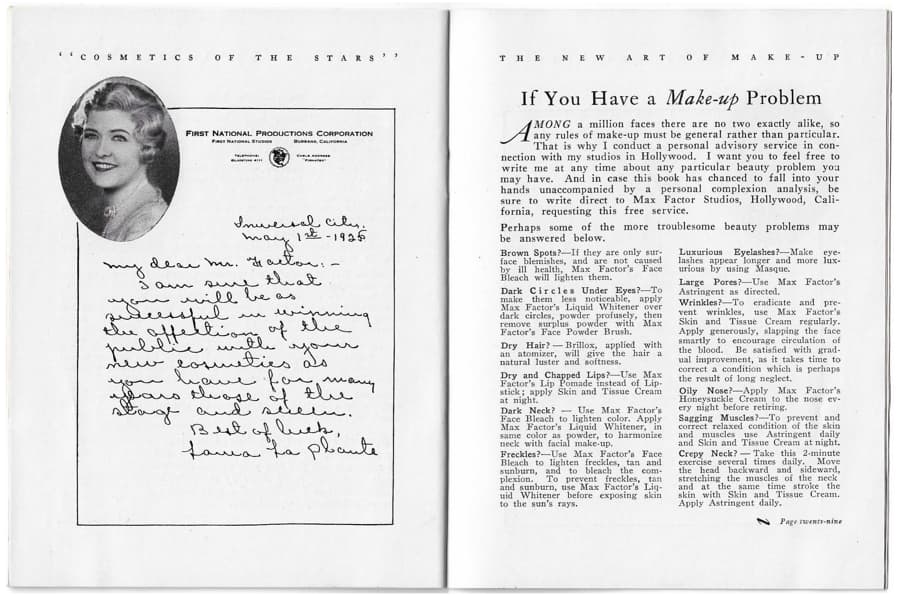 "COSMETICS OF THE STARS"
FIRST NATIONAL PRODUCTIONS CORPORATION
FIRST NATIONAL STUDIOS BURBANK, CALIFORNIA
TELEPHONE: CABLE ADDRESS
GLADSTONE 4111 "FIRNATEX"
Universal City,
May 1st - 1928
My dear Mr. Factor:-
I am sure that
you will be as
successful in winning
the affection of the
public with your
new cosmetics as
you have for many
years those of the
stage and screen.
Best of luck,
Laura La Plante
THE NEW ART OF MAKE-UP
If You Have a Make-up Problem
AMONG a million faces there are no two exactly alike, so
any rules of make-up must be general rather than particular.
That is why I conduct a personal advisory service in con-
nection with my studios in Hollywood. I want you to feel free to
write me at any time about any particular beauty problem you
may have. And in case this book has chanced to fall into your
hands unaccompanied by a personal complexion analysis, be
sure to write direct to Max Factor Studios, Hollywood, Cali-
fornia, requesting this free service.
Perhaps some of the more troublesome beauty problems may
be answered below.
Brown Spots?—If they are only sur-
face blemishes, and are not caused
by ill health, Max Factor's Face
Bleach will lighten them.
Dark Circles Under Eyes?—To
make them less noticeable, apply
Max Factor's Liquid Whitener over
dark circles, powder profusely, then
remove surplus powder with Max
Factor's Face Powder Brush.
Dry Hair?—Brillox, applied with
an atomizer, will give the hair a
natural luster and softness.
Dry and Chapped Lips?—Use Max
Factor's Lip Pomade instead of Lip-
stick; apply Skin and Tissue Cream
at night.
Dark Neck? — Use Max Factor's
Face Bleach to lighten color. Apply
Max Factor's Liquid Whitener, in
same color as powder, to harmonize
neck with facial make-up.
Freckles?—Use Max Factor's Face
Bleach to lighten freckles, tan and
sunburn, and to bleach the com-
plexion. To prevent freckles, tan
and sunburn, use Max Factor's Liq-
uid Whitener before exposing skin
to the sun's rays.
Luxurious Eyelashes?—Make eye-
lashes appear longer and more lux-
urious by using Masque.
Large Pores?—Use Max Factor's
Astringent as directed.
Wrinkles?—To eradicate and pre-
vent wrinkles, use Max Factor's
Skin and Tissue Cream regularly.
Apply generously, slapping the face
smartly to encourage circulation of
the blood. Be satisfied with grad-
ual improvement, as it takes time to
correct a condition which is perhaps
the result of long neglect.
Oily Nose?—Apply Max Factor's
Honeysuckle Cream to the nose ev-
ery night before retiring.
Sagging Muscles?—To prevent and
correct relaxed condition of the skin
and muscles use Astringent daily
and Skin and Tissue Cream at night.
Crepy Neck? — Take this 2-minute
exercise several times daily. Move
the head backward and sideward,
stretching the muscles of the neck
and at the same time stroke the
skin with Skin and Tissue Cream.
Apply Astringent daily.
Page twenty-nine